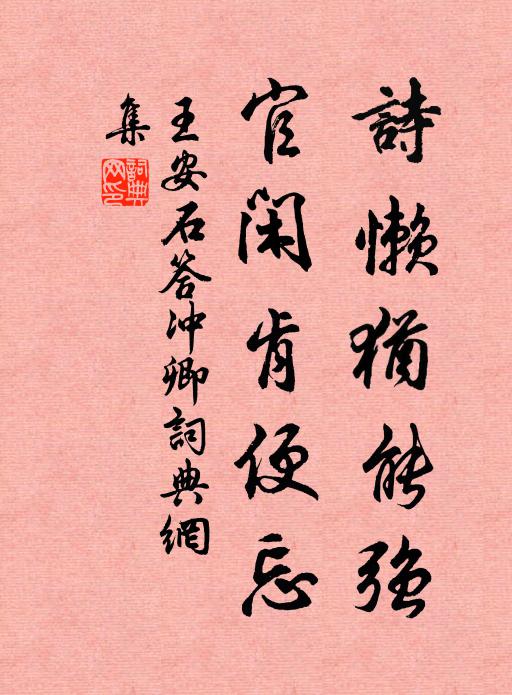 詩懶猶能強
官閑肯便忘
王安石答沖卿詞典網
集
詞典網印